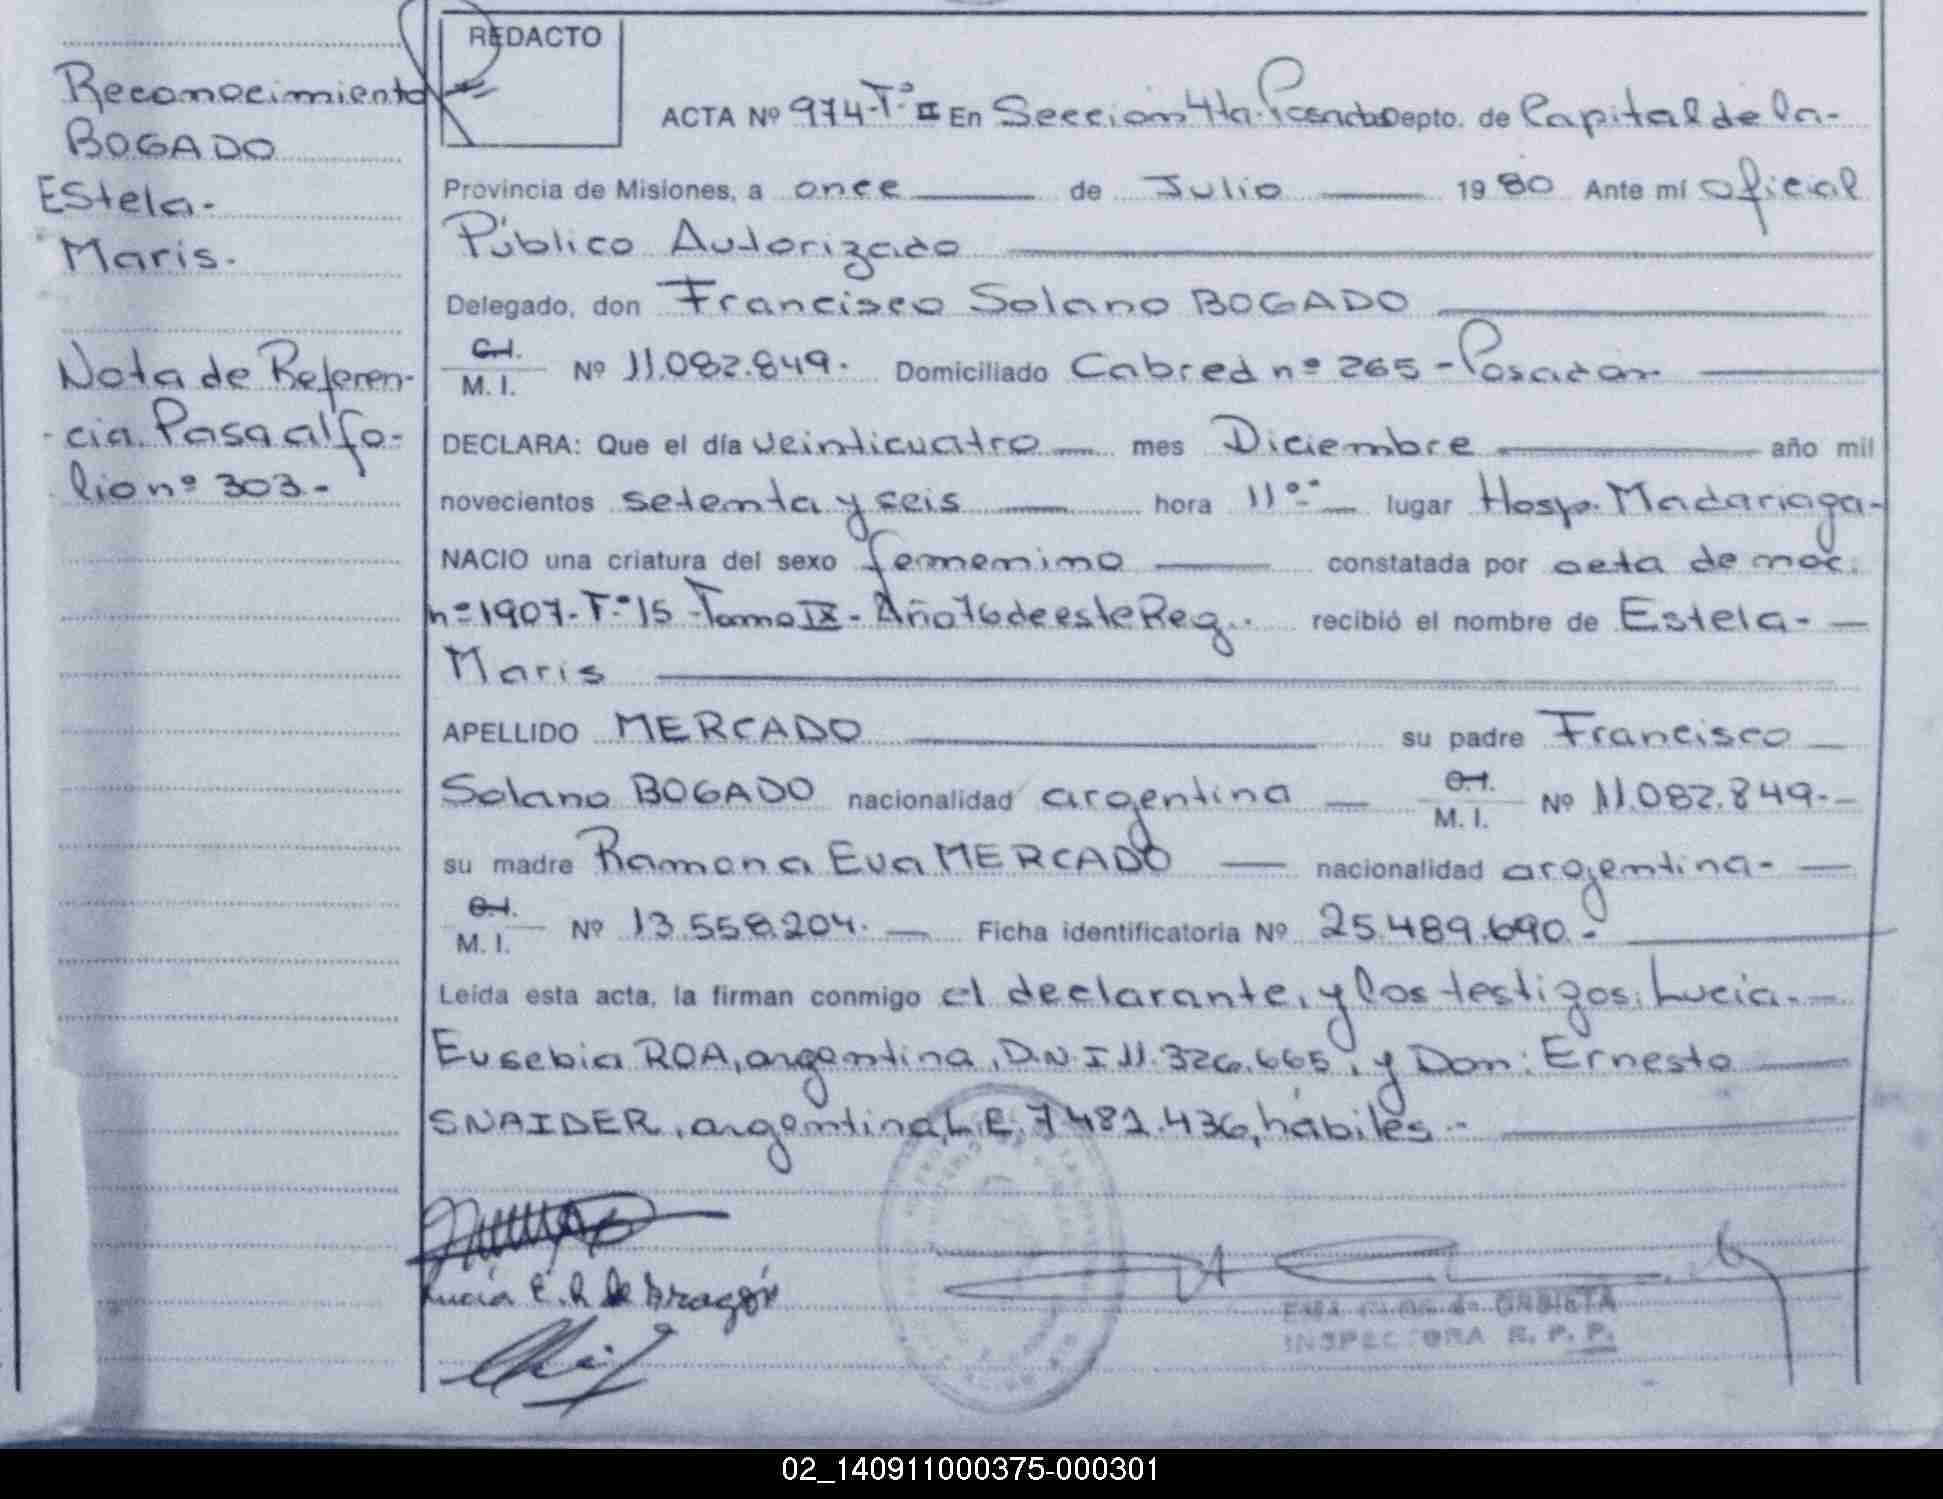 Reconocimiento
BOGADO
EStela-
Maris.
Nota de Referen-
-cia. Pasa al fo-
lio nº 303-
REDACTO
ACTA Nº 974-Tº II En Seccion 4ta. Posadas Depto. de Capital de la-
Provincia de Misiones, a once de Julio 1980 Ante mí oficial
Público Autorizado
Delegado, don Francisco Solano BOGADO
C.I. M. I. Nº 11.082.849. Domiciliado Cabred nº 265 - Posadas.
DECLARA: Que el día veinticuatro mes Diciembre año mil
novecientos setenta y seis hora 11º lugar Hosp. Madariaga-
NACIO una criatura del sexo femenino constatada por acta de nac.
nº 1907-Tº 15 - Tomo IX - Año 76 de este Reg.. recibió el nombre de Estela-
Maris
APELLIDO MERCADO su padre Francisco
Solano BOGADO nacionalidad argentina C.I. M. I. Nº 11.082.849.-
su madre Ramona Eva MERCADO nacionalidad argentina-
C.I. M. I. Nº 13.558.204. Ficha identificatoria Nº 25.489.690.-
Leída esta acta, la firman conmigo el declarante, y los testigos: Lucia.
Eusebia ROA, argentina, D.N.I 11.326.665, y Don: Ernesto
SNAIDER, argentina, L.E. 7.481.436, hábiles.-
Lucia E. R. de Aragón
INSPECTORA R. P. P.
02_140911000375-000301